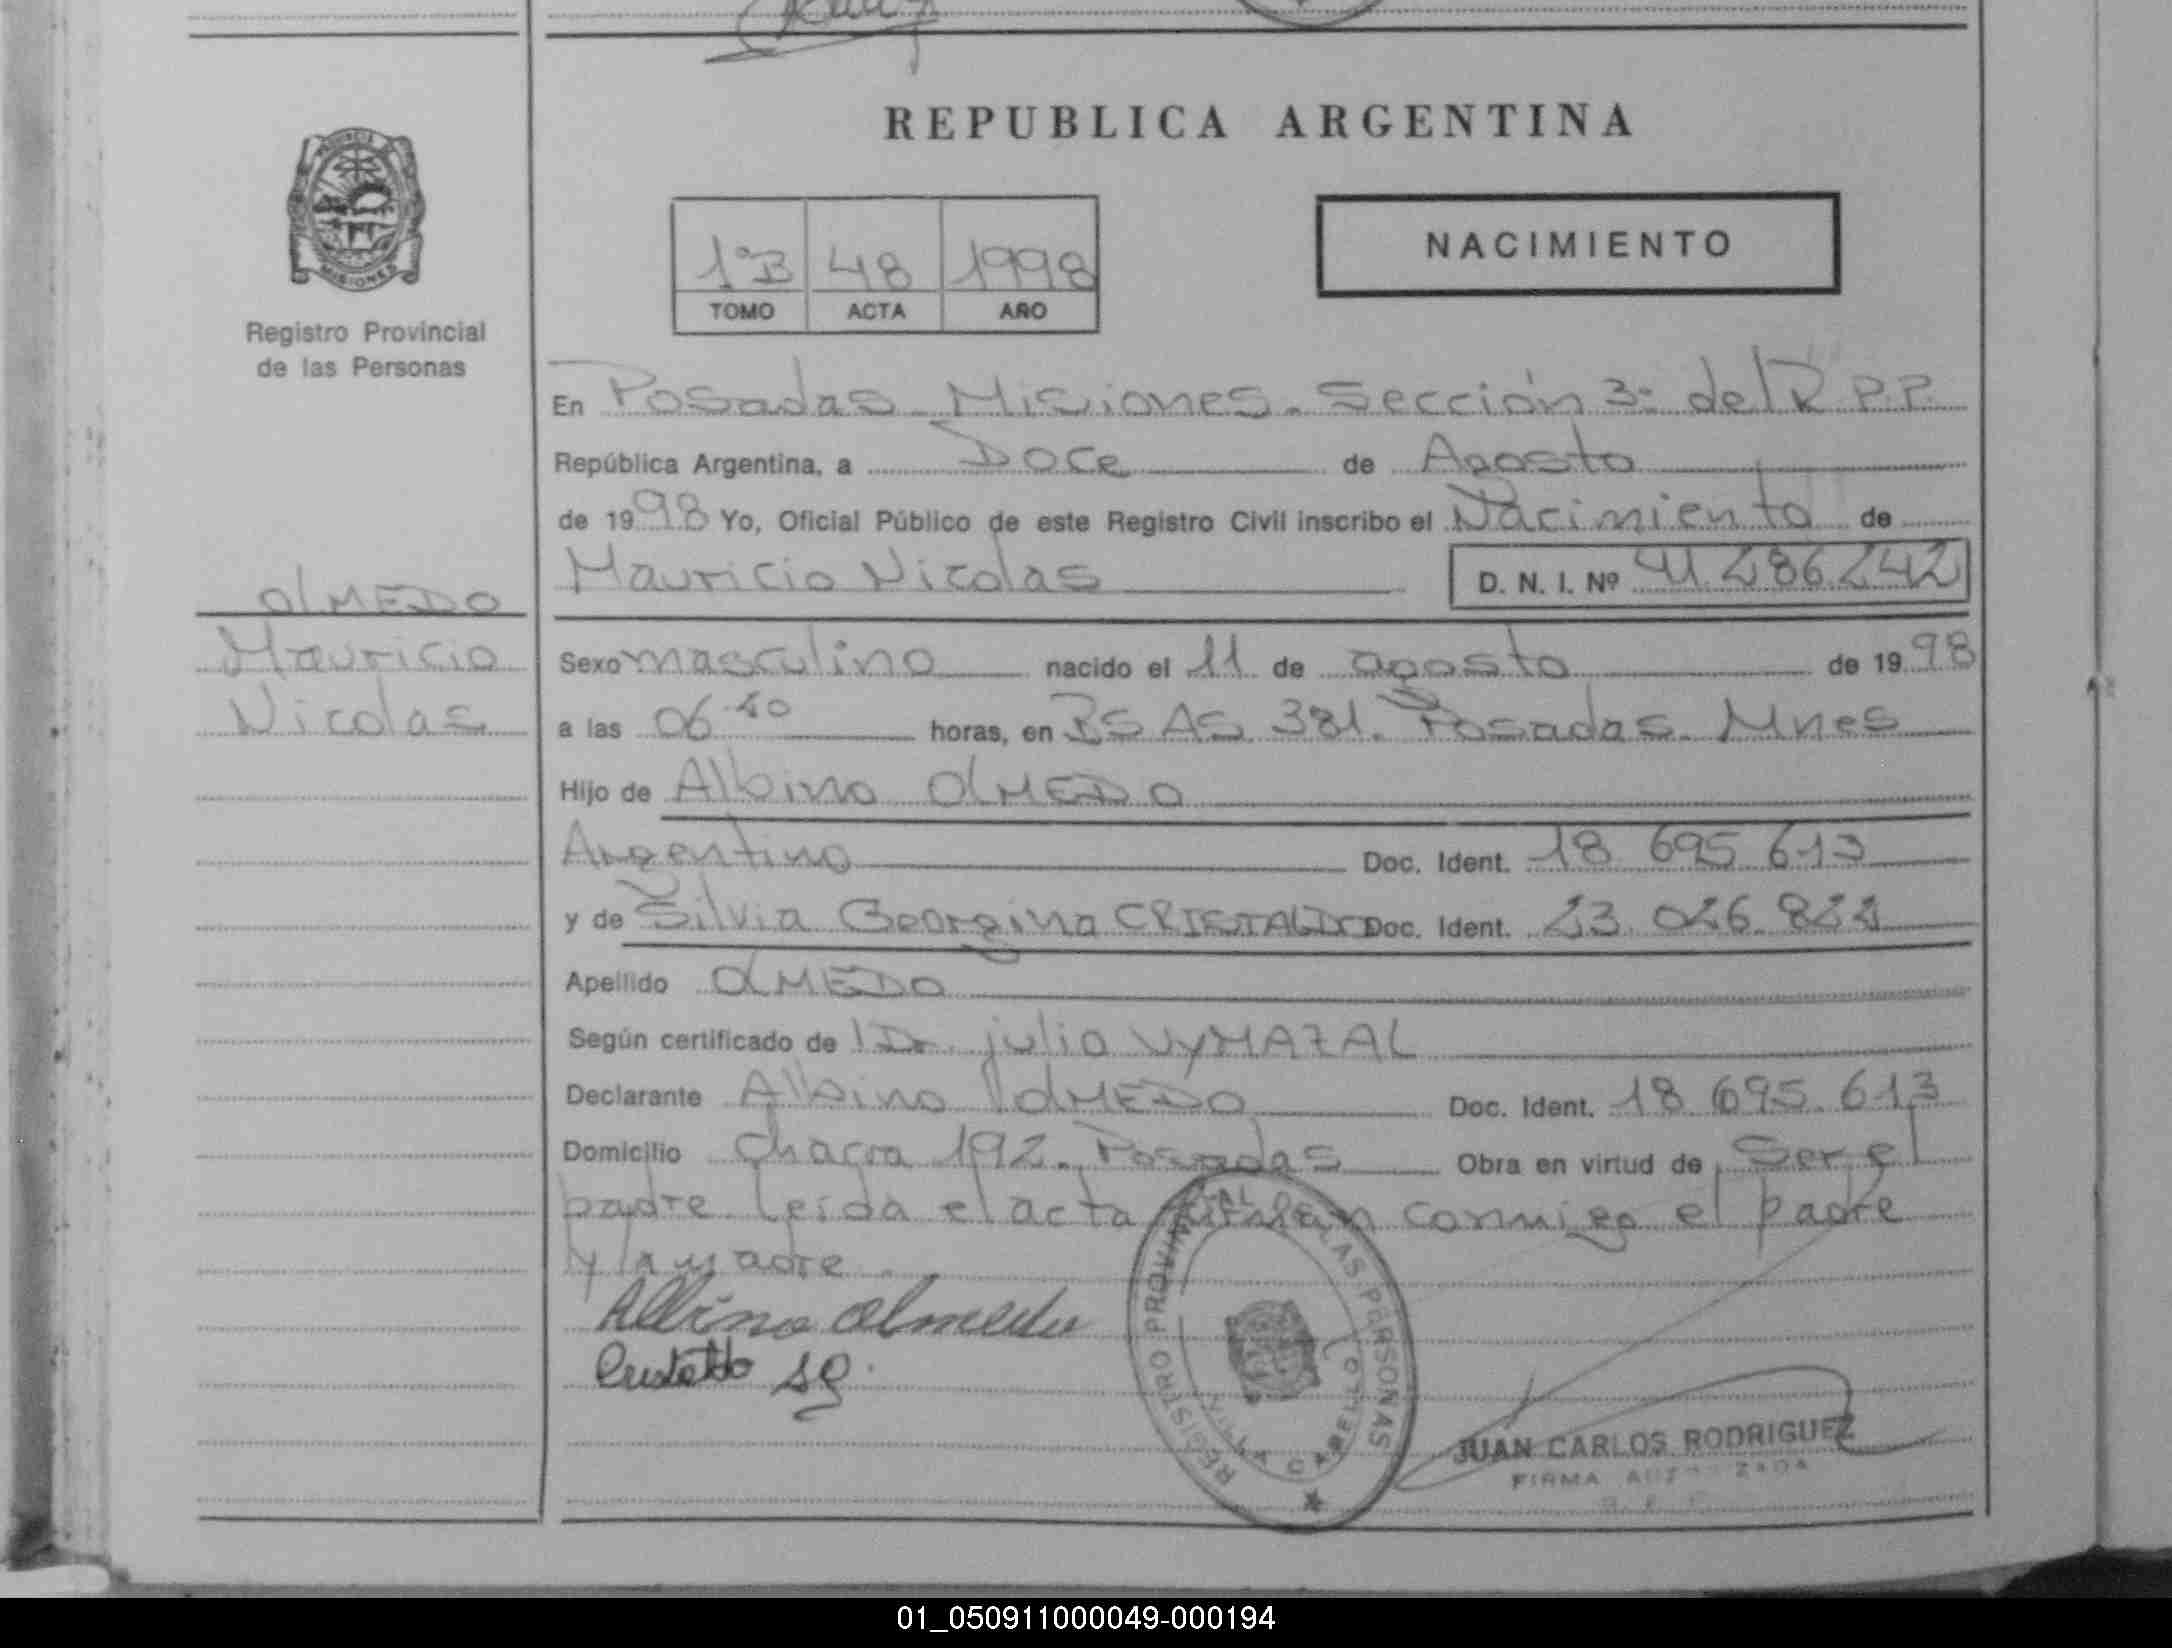 REPUBLICA ARGENTINA
PROVINCIA
MISIONES
Registro Provincial
de las Personas
1°B 48 1998
TOMO ACTA AÑO
NACIMIENTO
En Posadas Misiones. Sección 3° del R.P.P.
República Argentina, a Doce de Agosto
de 1998 Yo, Oficial Público de este Registro Civil inscribo el Nacimiento de
Mauricio Nicolas D. N. I. Nº 41.286.242
OLMEDO
Mauricio
Nicolas
Sexo masculino nacido el 11 de agosto de 1998
a las 06 40 horas, en BS AS 381. Posadas. Mnes
Hijo de Albino OLMEDO
Argentino Doc. Ident. 18 695 613
y de Silvia Georgina CRISTALDO Doc. Ident. 23.026.822
Apellido OLMEDO
Según certificado de Dr. julio VYMAZAL
Declarante Albino OLMEDO Doc. Ident. 18 695.613
Domicilio Chacra 192. Posadas Obra en virtud de Ser el
padre leida el acta firman conmigo el padre
y la madre
Albino Olmedo
SG.
REGISTRO PROVINCIAL DE LAS PERSONAS
JUAN CARLOS RODRIGUEZ
FIRMA AUTORIZADA
01_050911000049-000194